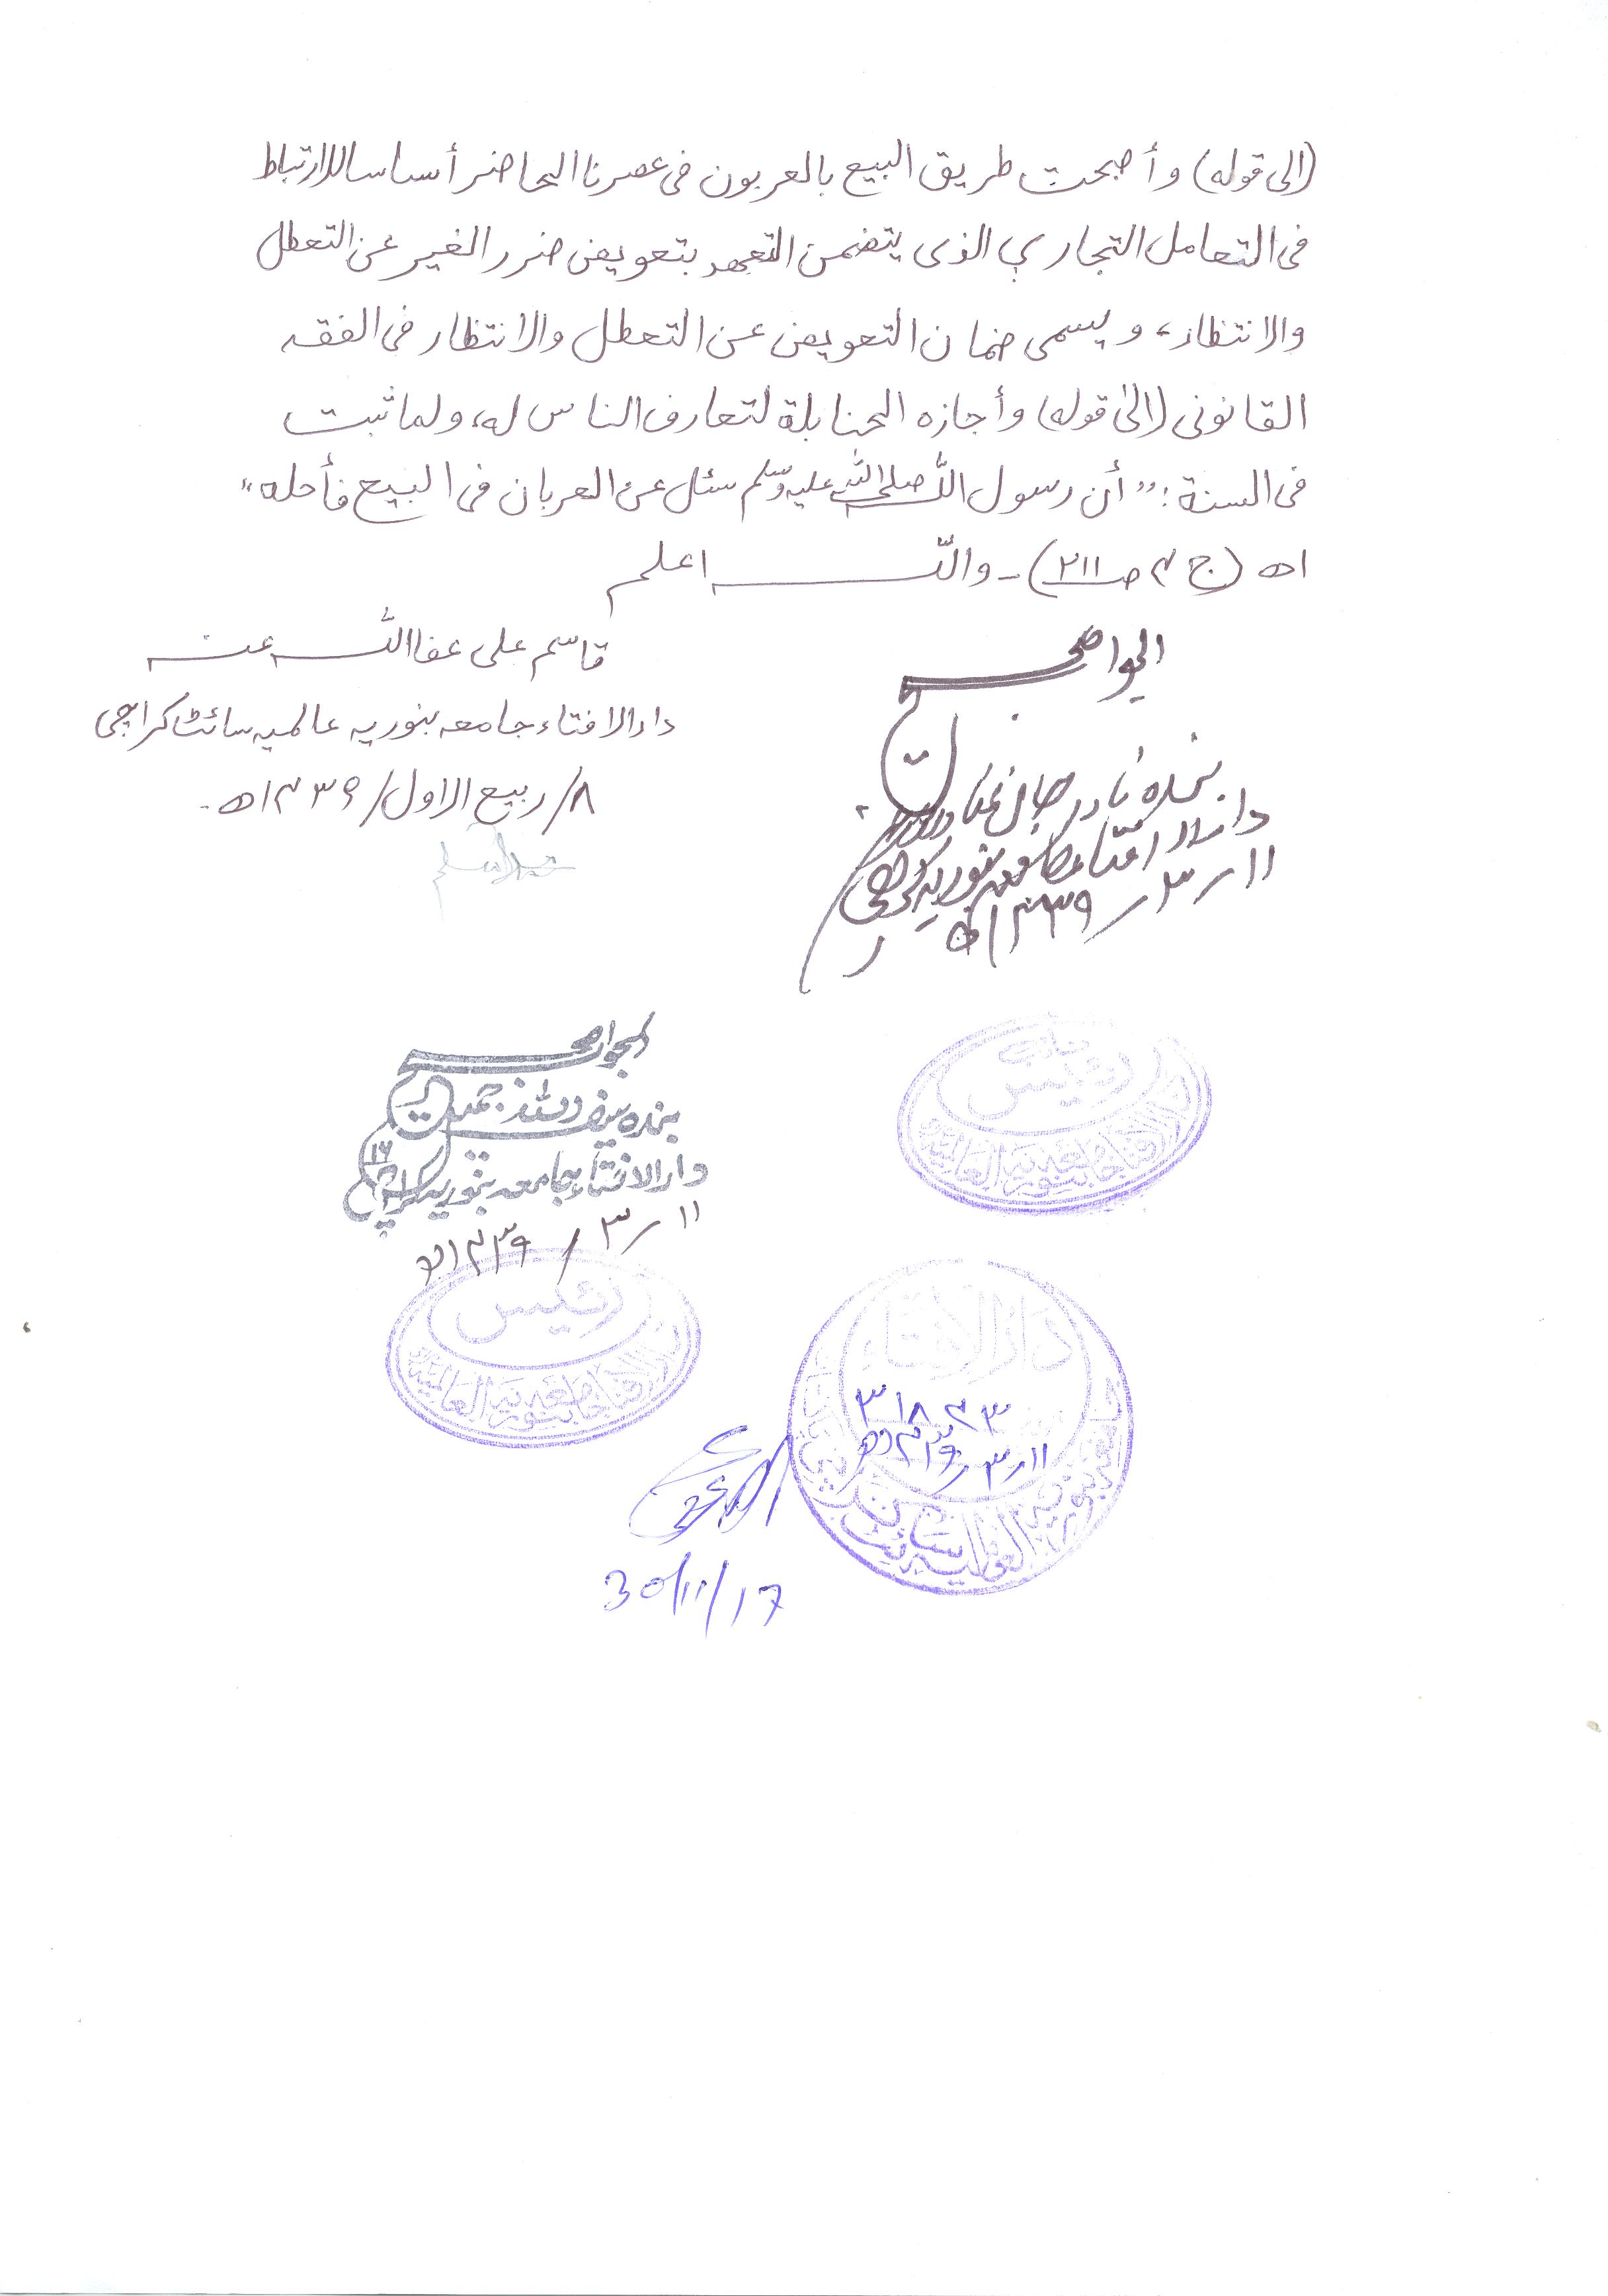 (الى قوله) وأصبحت طريق البيع بالعربون فى عصرنا الحاضر أساسا للارتباط
فى التعامل التجاري الذى يتضمن التعهد بتعويض ضرر الغير عن التعطل
والانتظار، ويسمى ضمان التعويض عن التعطل والانتظار فى الفقه
القانونى (الىٰ قوله) وأجازه الحنابلة لتعارف الناس له، ولما ثبت
فى السنة: ”أن رسول اللّٰه صلى اللّٰه عليه وسلّم سئل عن العربان فى البيع فأحله“
اھ (ج ۴ صـ ۲۱۱)ـ واللّٰه اعلم
قاسم على عفا اللّٰه عنه
دارالافتاء جامعه بنوریہ عالمیہ سائٹ کراچی
۸/ربیع الاول/۱۴۳۹ھ۔
الجواب صحیح
بندہ نادر جان
دارالافتاء جامعہ بنوریہ کراچی
۱۱/۳/۱۴۳۹ھ
الجواب صحیح
بندہ
دارالافتاء جامعہ بنوریہ کراچی
۱۱/۳/۱۴۳۹ھ
نائب
رئیس
دارالافتاء جامعہ بنوریہ العالمیہ
رئیس
دارالافتاء جامعہ بنوریہ العالمیہ
دارالافتاء
۳۱۸۴۳
۱۱/۳/۱۴۳۹ھ
30/11/17